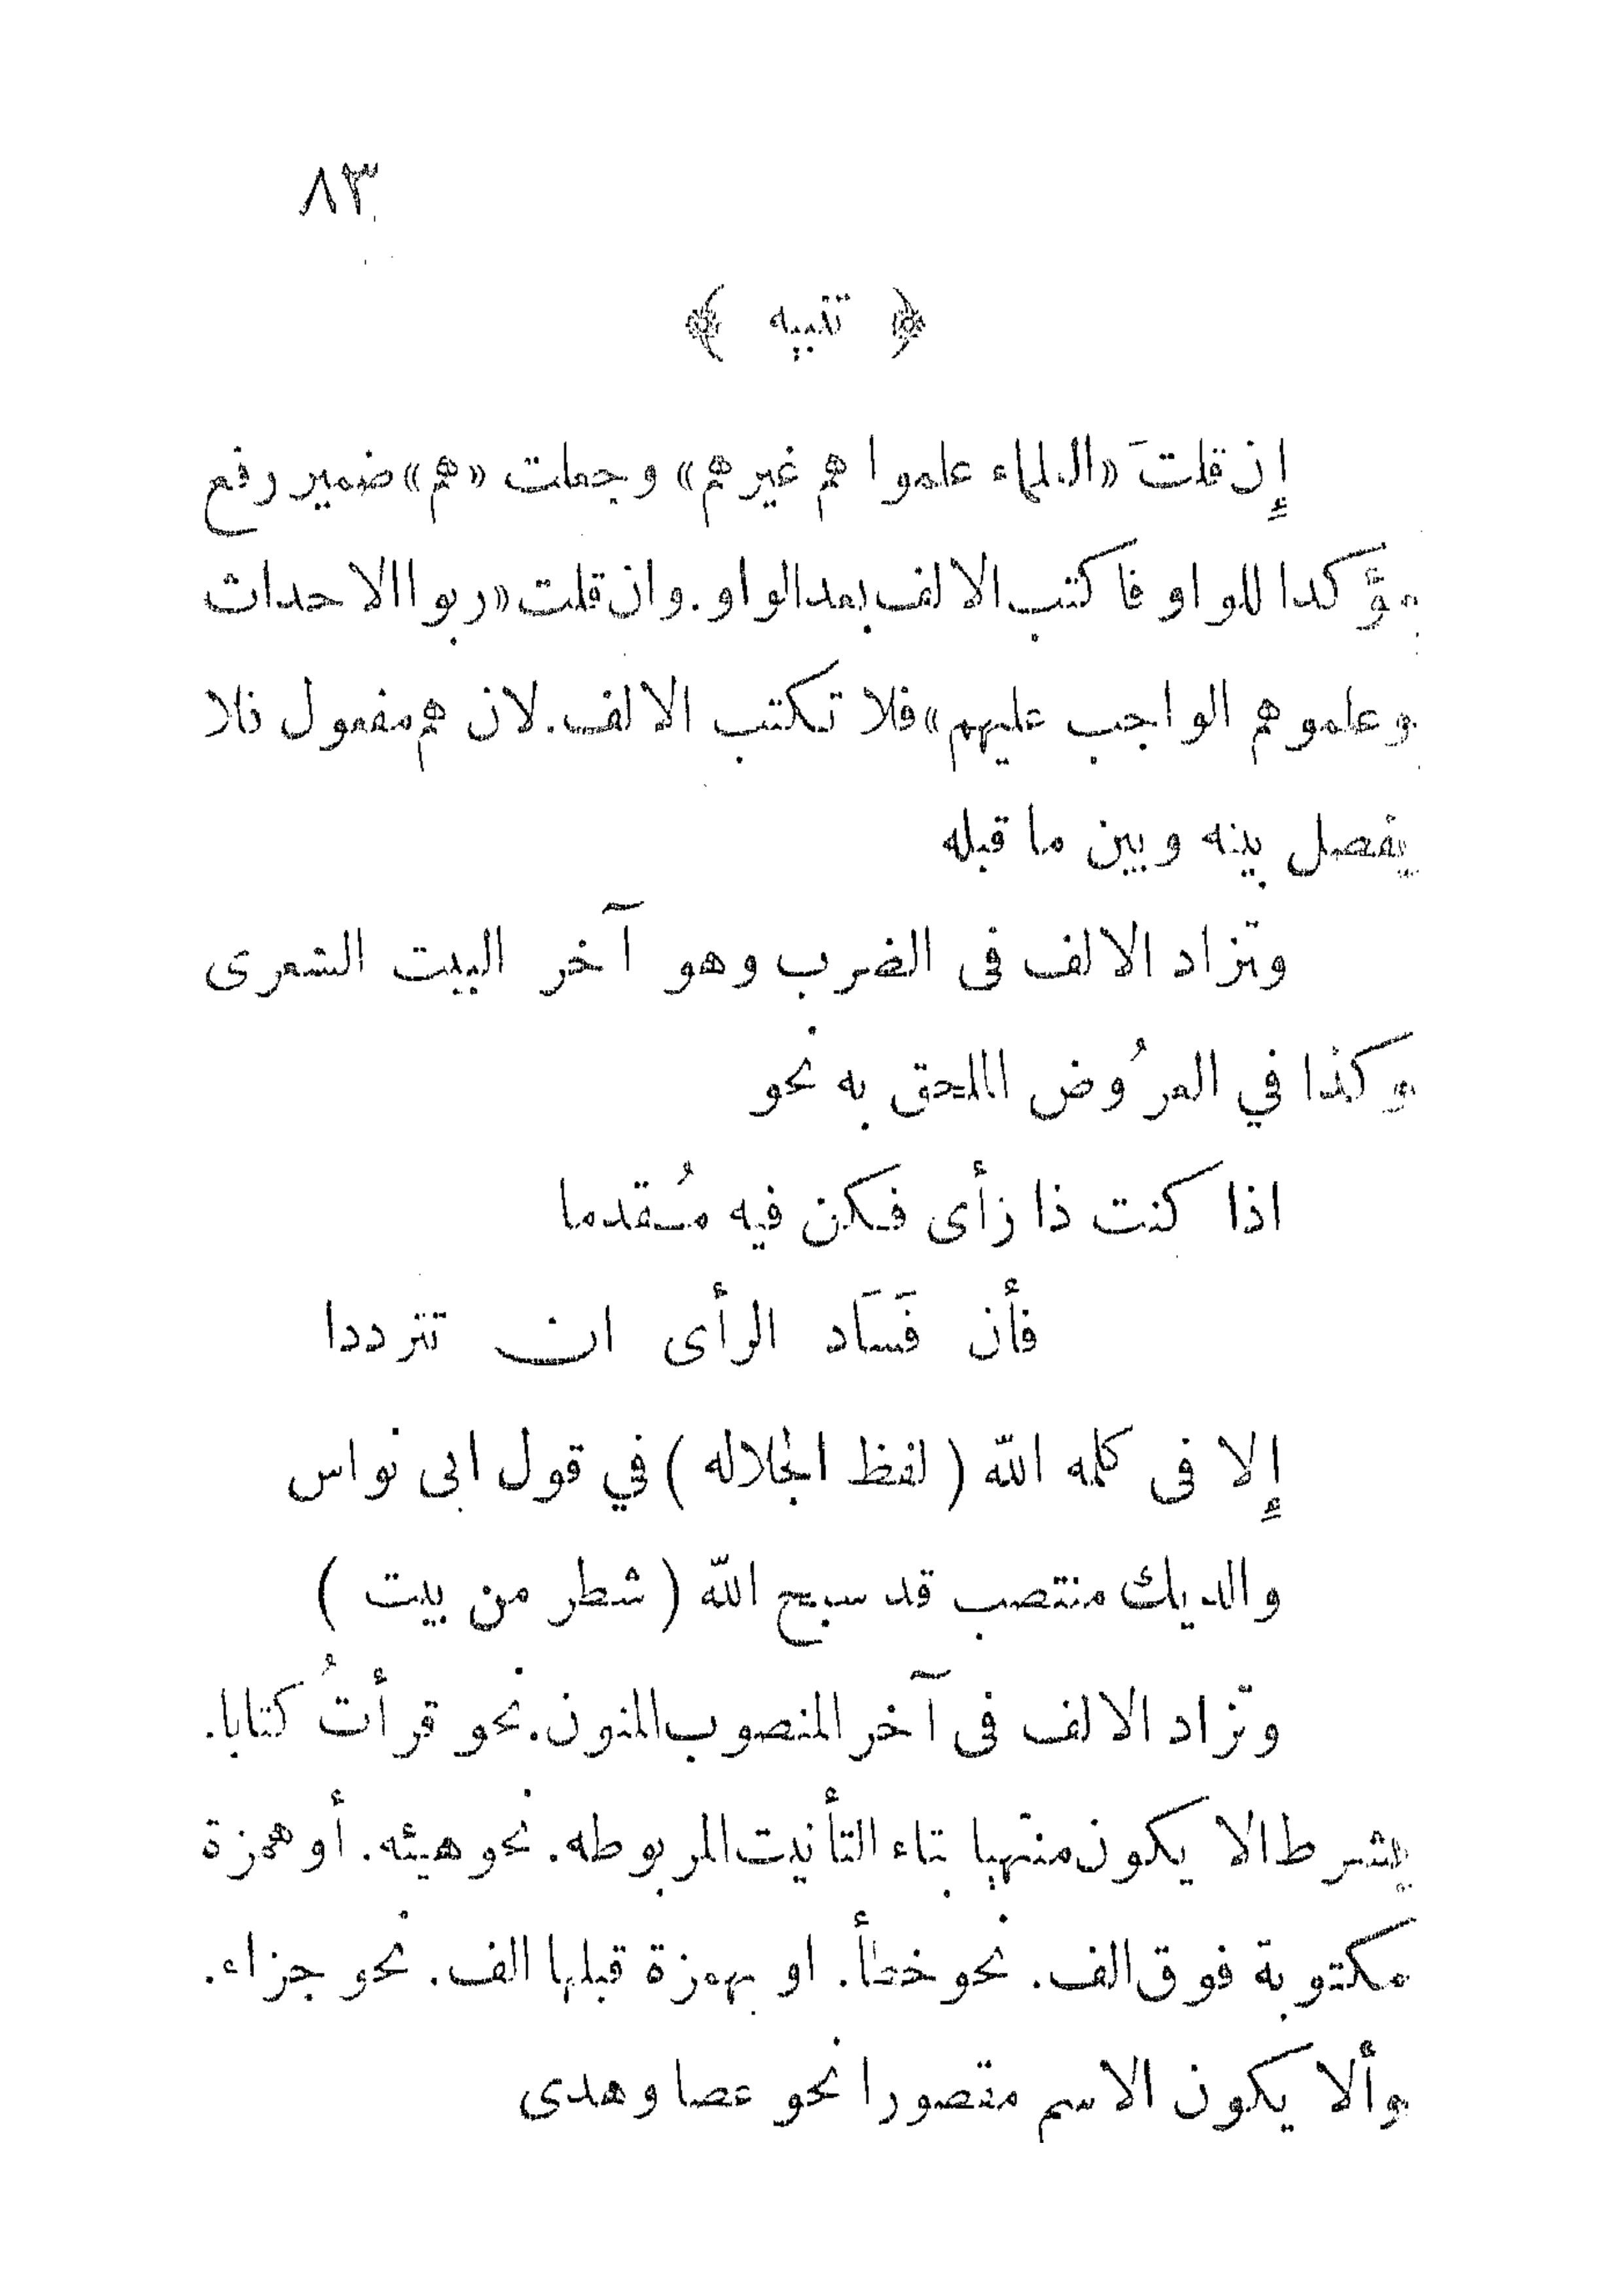 ٨٣
﴿ تنبيه ﴾
إن قلتَ «العلماء علموا هم غيرهم» وجعلت «هم» ضمير رفع
مؤكدا للواو فاكتب الالف بعد الواو. وان قلت «ربوا الاحداث
وعلموهم الواجب عليهم» فلا تكتب الالف. لان هم مفعول فلا
يفصل بينه وبين ما قبله
وتزاد الالف فى الضرب وهو آخر البيت الشعرى
وكذا في العرُوض الملحق به نحو
اذا كنت ذا رأى فكن فيه مُقدما
فأن فَسَاد الرأى ان تترددا
إلا فى كلمه الله ( لفظ الجلاله ) في قول ابى نواس
والديك منتصب قد سبح الله ( شطر من بيت )
وتزاد الالف فى آخر المنصوب المنون. نحو قرأتُ كتابا.
بشرط الا يكون منتهيا بتاء التأنيث المربوطه. نحو هيئه. أو همزة
مكتوبة فوق الف. نحو خطأ. او بهمزة قبلها الف. نحو جزاء.
وألا يكون الاسم مقصورا نحو عصا وهدى